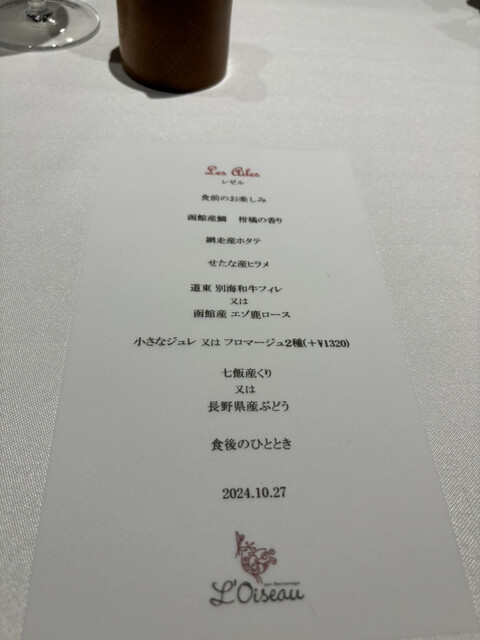 Les Ailes
レゼル
食前のお楽しみ
函館産鯛 柑橘の香り
網走産ホタテ
せたな産ヒラメ
道東 別海和牛フィレ
又は
函館産 エゾ鹿ロース
小さなジュレ 又は フロマージュ2種(+¥1320)
七飯産くり
又は
長野県産ぶどう
食後のひととき
2024.10.27
L'Oiseau